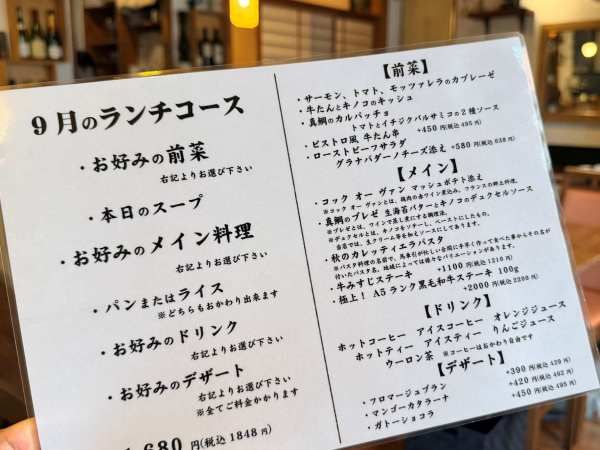 9月のランチコース
・お好みの前菜
右記よりお選び下さい
・本日のスープ
・お好みのメイン料理
右記よりお選び下さい
・パンまたはライス
※どちらもおかわり出来ます
・お好みのドリンク
右記よりお選び下さい
・お好みのデザート
右記よりお選び下さい
※全てご料金かかります
680円(税込 1848 円)
【前菜】
・サーモン、トマト、モッツァレラのカプレーゼ
・牛たんとキノコのキッシュ
・真鯛のカルパッチョ
トマトとイチジクバルサミコの2種ソース
・ビストロ風 牛たん串 +450円(税込 495 円)
・ローストビーフサラダ
グラナパダーノチーズ添え +580円(税込 638 円)
【メイン】
・コック オー ヴァン マッシュポテト添え
※コック オー ヴァンとは、鶏肉の赤ワイン煮込み。フランスの郷土料理。
・真鯛のブレゼ 生海苔バターとキノコのデュクセルソース
※ブレゼとは、ワインで蒸し煮にする調理法。
※デュクセルとは、キノコをソテーし、ペーストにしたもの。
当店では、生クリーム等を加えソースにしてあります。
・秋のカレッティエラパスタ
※パスタ料理の名前で、馬車引が忙しい合間に手早く作って食べた事からその名が
付いたパスタ。地域によっては様々なバリエーションがあります。
・牛みすじステーキ +1100円(税込1210円)
・極上！ A5ランク黒毛和牛ステーキ 100g
+2000円(税込 2200 円)
【ドリンク】
ホットコーヒー アイスコーヒー オレンジジュース
ホットティー アイスティー りんごジュース
ウーロン茶 ※コーヒーはおかわり自由です
【デザート】
・フロマージュブラン +390円(税込 429 円)
・マンゴーカタラーナ +420円(税込 462 円)
・ガトーショコラ +450円(税込 495 円)